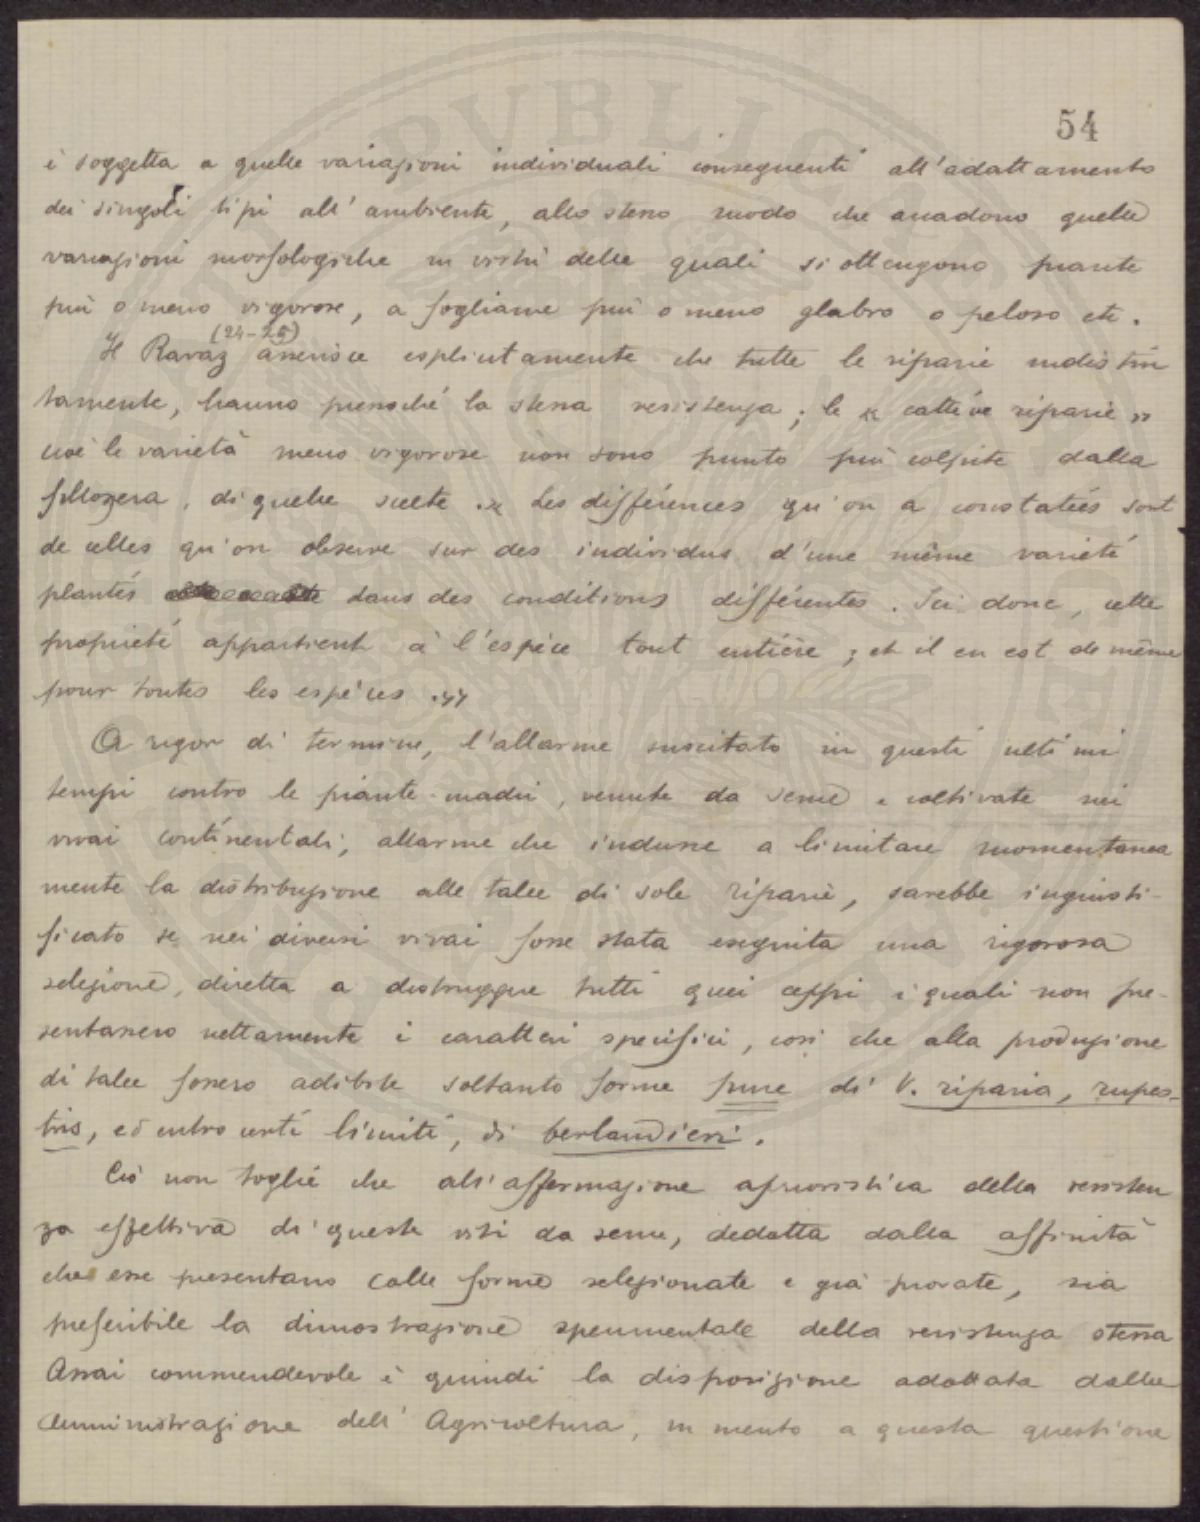 54
è soggetta a quelle variazioni individuali conseguenti all'adattamento
dei singoli tipi all'ambiente, allo stesso modo che accadono quelle
variazioni morfologiche in virtù delle quali si ottengono piante
più o meno vigorose, a fogliame più o meno glabro o peloso etc.
(24-25)
Il Ravaz asserisce esplicitamente che tutte le riparie indistin
tamente, hanno pressoché la stessa resistenza; le « cattive riparie »
cioè le varietà meno vigorose non sono punto più colpite dalla
fillossera, di quelle scelte. « Les différences qu'on a constatées sont
de celles qu'on observe sur des individus d'une même varieté
plantés dans des conditions différentes. Ici donc, cette
proprieté appartient à l'espèce tout entière; et il en est de même
pour toutes les espèces. »
A rigor di termine, l'allarme suscitato in questi ultimi
tempi contro le piante-madri, venute da seme e coltivate nei
vivai continentali, allarme che indusse a limitare momentanea
mente la distribuzione alle talee di sole riparie, sarebbe ingiusti-
ficato se nei diversi vivai fosse stata eseguita una rigorosa
selezione, diretta a distruggere tutti quei ceppi i quali non pre-
sentassero nettamente i caratteri specifici, così che alla produzione
di talee fossero adibite soltanto forme pure di V. riparia, rupes-
tris, ed entro certi limiti, di berlandieri.
Ciò non toglie che all'affermazione aprioristica della resisten
za effettiva di queste viti da seme, dedotta dalla affinità
che esse presentano colle forme selezionate e già provate, sia
preferibile la dimostrazione sperimentale della resistenza stessa
Assai commendevole è quindi la disposizione adottata dalla
Amministrazione dell'Agricoltura, in merito a questa questione